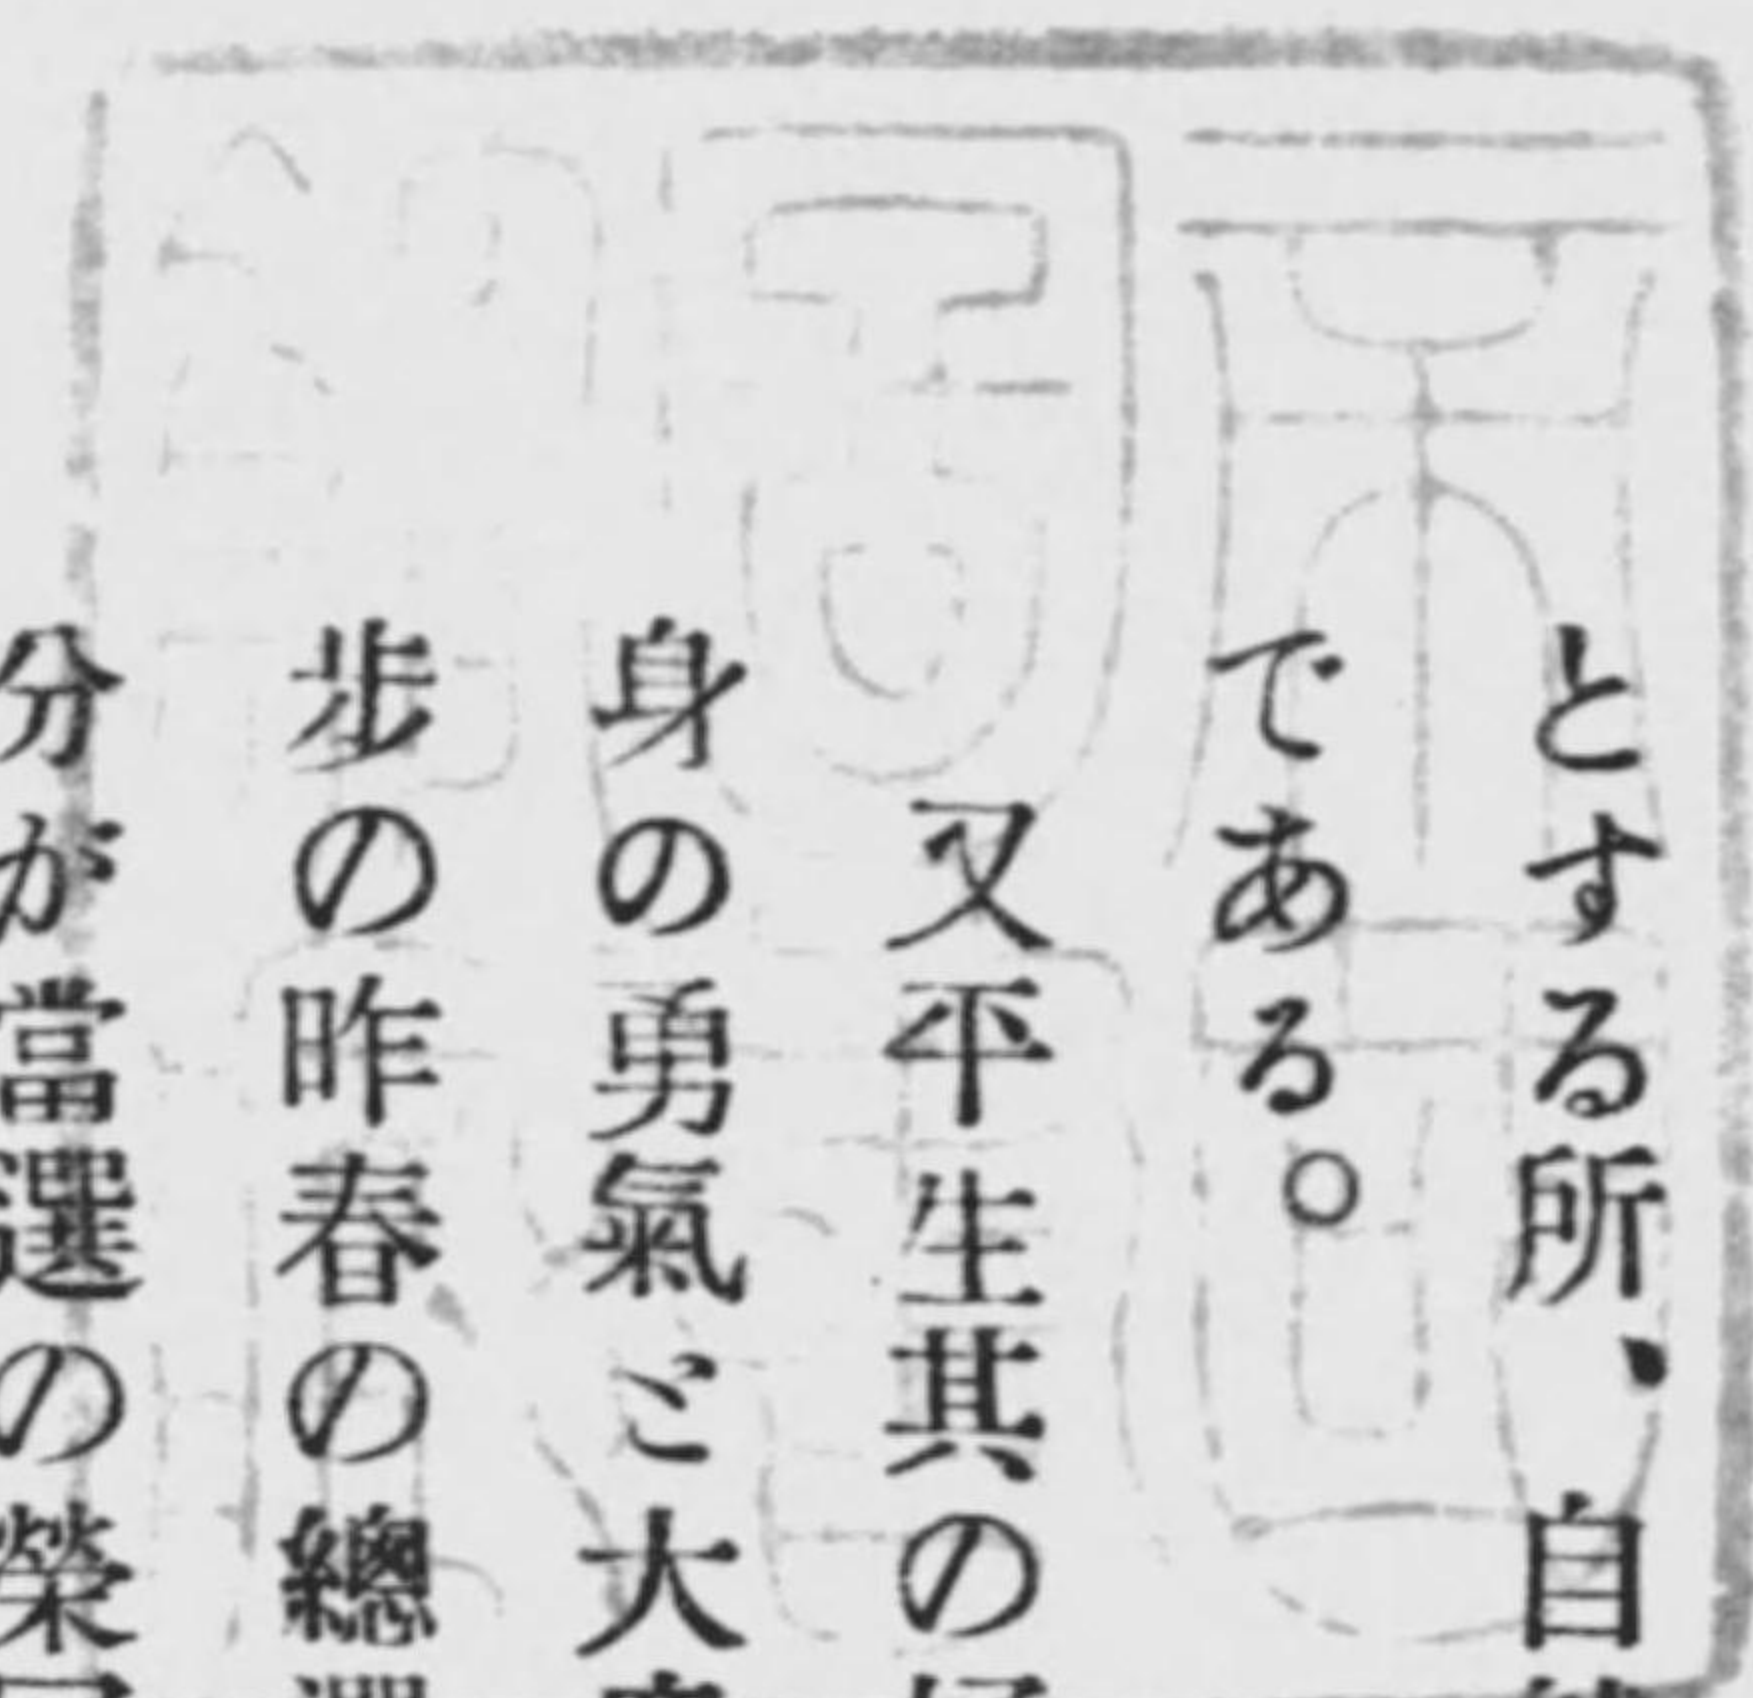 とする所、自
である。
又平生其の
身の勇氣と大
步の昨春の總選
分が當選の榮